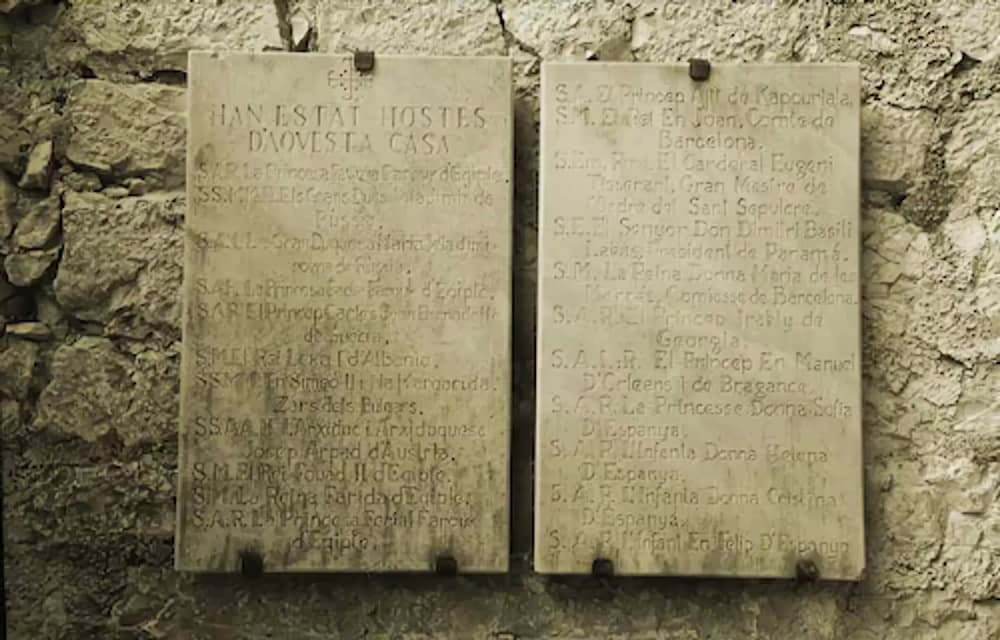 HAN ESTAT HOSTES
D'AQVESTA CASA
S.A.R. La Princesa Farouk d'Egipte.
Els Grans Ducs Vladimir de
Russia.
S.A.I. La Gran Duquesa Maria
de Russia.
S.A.R. La Princesa Farouk d'Egipte.
S.A.R. El Princep Carles Joan Bernadotte
de Suecia.
S.M. El Rei Leka I d'Albania.
SS.MM. En Simeo II i Na Margarida.
Zars dels Bulgars.
SS.AA.II. L'Arxiduc i Arxiduquesa
Josep Arpad d'Austria.
S.M. El Rei Fouad II d'Egipte.
S.M. La Reina Farida d'Egipte.
S.A.R. La Princesa Ferial Farouk
d'Egipte.
S.A. El Princep Ajit de Kapourtala.
S.M. El Rei En Joan, Comte de
Barcelona.
S.Em. Rm. El Cardenal Eugeni
Tisserant, Gran Mestre de
l'Ordre del Sant Sepulcre.
S.E. El Senyor Don Dimitri Basili
Lakas, President de Panamá.
S.M. La Reina Donna Maria de les
Mercés, Comtesse de Barcelona.
S.A.R. El Princep Irakly de
Georgia.
S.A.I.R. El Princep En Manuel
D'Orleans i de Bragance.
S.A.R. La Princesse Donna Sofia
D'Espanya.
S.A.R. L'Infanta Donna Helena
D'Espanya.
S.A.R. L'Infanta Donna Cristina
D'Espanya.
S.A.R. l'Infant En Felip D'Espanya